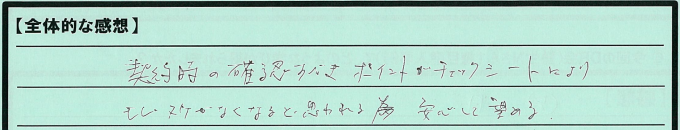 【全体的な感想】
契約時の確認すべきポイントがチェックシートにより
もれ、ヌケがなくなると思われる為 安心して望める。